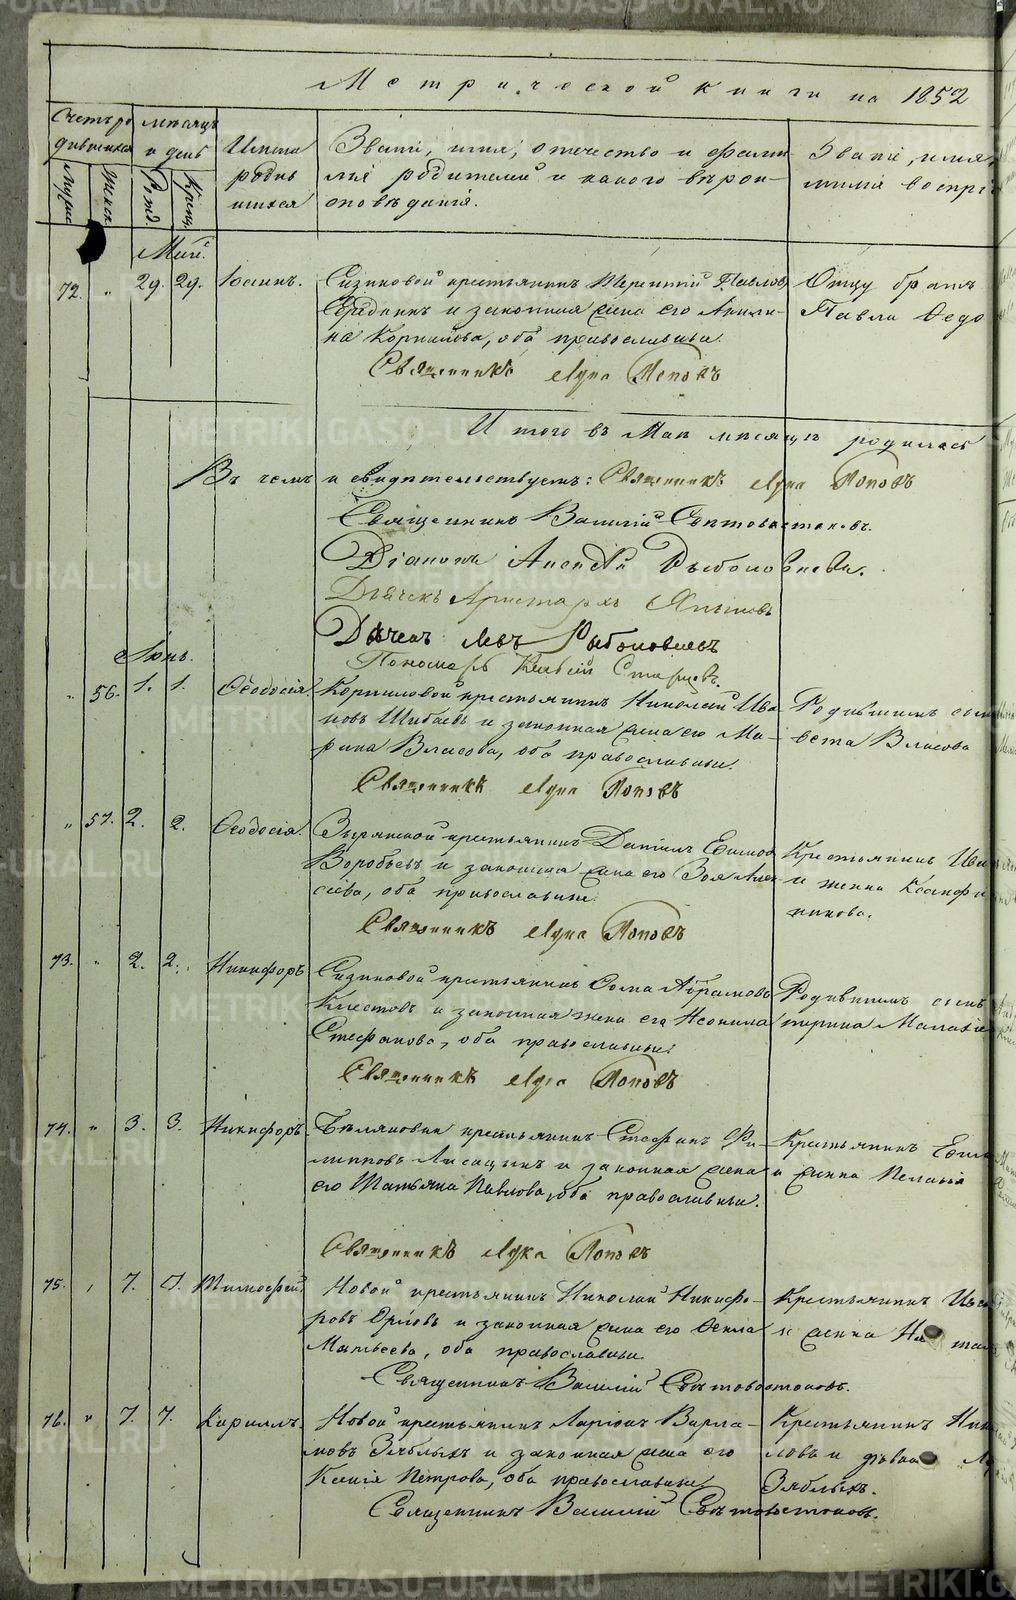 Метрической книги на 1852
Счетъ ро
дившихся
мѣсяцъ
и день
Имена
родив
шихся
Званіе, имя, отечество и фами
лія родителей и какого вѣрои-
сповѣданія.
Званіе, имя,
милія воспрі
Мужес
Женск
Рожд.
Крещ.
Май.
72. " 29. 29. Іоаннъ.
Сизиковой крестьянинъ Терентій Павловъ
и законная жена его Акили-
на Корнилова, оба православные.
Священникъ Лука Поповъ
Отцу братъ
Павла Ѳедо
Итого въ Маѣ мѣсяцѣ родилось
Въ чемъ и свидѣтельствуемъ: Священникъ Лука Поповъ
Священникъ Василій Свѣтовостоковъ.
Діаконъ Алексѣй Рыболовлевъ.
Дьячекъ Аристархъ
Дьячекъ Левъ Рыболовлевъ
Пономарь Старцевъ.
Іюнь.
" 56. 1. 1. Ѳеодосія.
Корниловой крестьянинъ Николай Ива
новъ Шибаевъ и законная жена его Ма-
рина Власова, оба православные.
Священникъ Лука Поповъ
Родившимъ сест
вета Власова
" 57. 2. 2. Ѳеодосія.
Зырянской крестьянинъ Даніилъ Ефимов
Воробьевъ и законная жена его Зоя Алек
сіева, оба православные.
Священникъ Лука Поповъ
Крестьянинъ Ива
и женка Ксанфи
никова.
73. " 2. 2. Никифоръ
Сизиковой крестьянинъ Ѳома Абрамовъ
Клестовъ и законная жена его Неонила
Стефанова, оба православные.
Священникъ Лука Поповъ
Родившимъ сынъ
терина Малахіе
74. " 3. 3. Никифоръ.
Бѣляковки крестьянинъ Стефанъ Фи-
липповъ Лисицынъ и законная жена
его Татьяна Павлова, оба православные.
Священникъ Лука Поповъ
Крестьянинъ Ефим
и женка Пелагія
75. " 7. 7. Тимоѳей.
Новой крестьянинъ Николай Никифо-
ровъ Орловъ и законная жена его Ѳекла
Матвеева, оба православные.
Священникъ Василій Свѣтовостоковъ.
Крестьянинъ
и женка
76. " 7. 7. Кириллъ.
Новой крестьянинъ Ларіонъ Варла-
мовъ Зяблыхъ и законная жена его
Ксенія Петрова, оба православные
Священникъ Василій Свѣтовостоковъ.
Крестьянинъ Ник
ловъ и дѣвка
Зяблыхъ.
METRIKI.GASO-URAL.RU